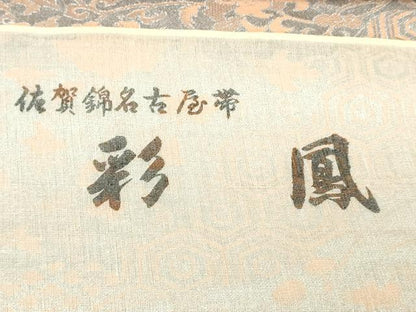 佐賀錦名古屋帯
彩鳳